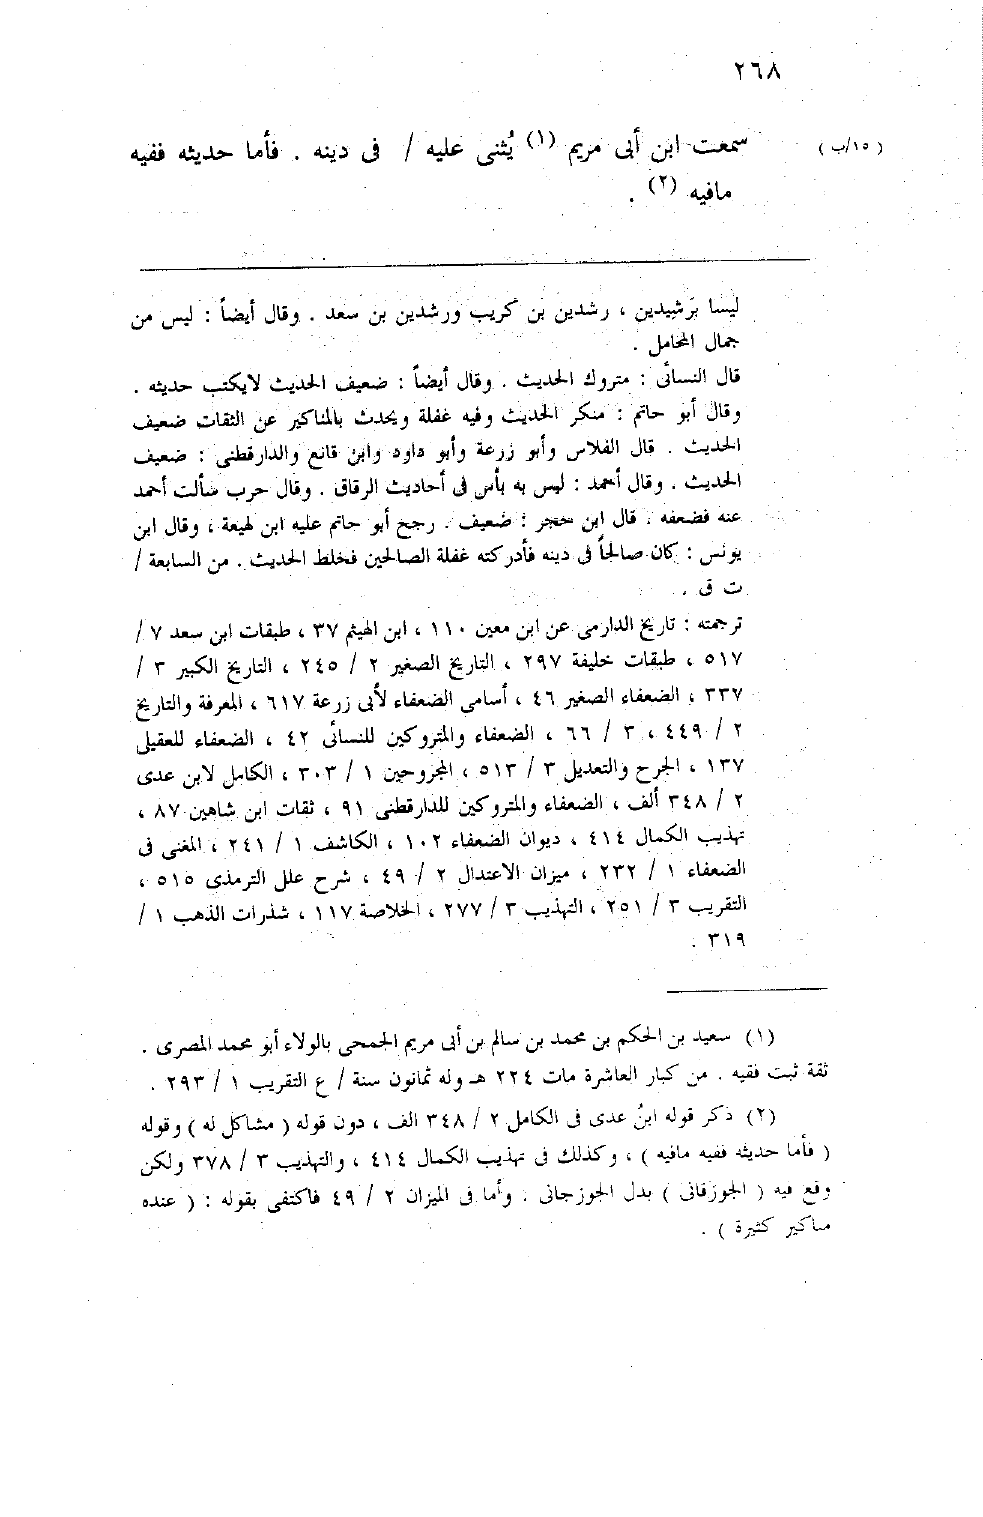 ٢٦٨
( ١٥/ب ) سمعت ابن أبى مريم (١) يُثنى عليه / فى دينه . فأما حديثه ففيه
مافيه (٢) .
ليسا برَشيدين ، رشدين بن كريب ورشدين بن سعد . وقال أيضاً : ليس من
جمال المحامل .
قال النسائى : متروك الحديث . وقال أيضاً : ضعيف الحديث لايكتب حديثه .
وقال أبو حاتم : منكر الحديث وفيه غفلة ويحدث بالمناكير عن الثقات ضعيف
الحديث . قال الفلاس وأبو زرعة وأبو داود وابن قانع والدارقطنى : ضعيف
الحديث . وقال أحمد : ليس به بأس فى أحاديث الرقاق . وقال حرب سألت أحمد
عنه فضعفه . قال ابن حجر : ضعيف . رجح أبو حاتم عليه ابن لهيعة ، وقال ابن
يونس : كان صالحاً فى دينه فأدركته غفلة الصالحين فخلط الحديث . من السابعة /
ت ق .
ترجمته : تاريخ الدارمى عن ابن معين ١١٠ ، ابن الهيثم ٣٧ ، طبقات ابن سعد ٧ /
٥١٧ ، طبقات خليفة ٢٩٧ ، التاريخ الصغير ٢ / ٢٤٥ ، التاريخ الكبير ٣ /
٣٣٧ ، الضعفاء الصغير ٤٦ ، أسامى الضعفاء لأبى زرعة ٦١٧ ، المعرفة والتاريخ
٢ / ٤٤٩ ، ٣ / ٦٦ ، الضعفاء والمتروكين للنسائى ٤٢ ، الضعفاء للعقيلى
١٣٧ ، الجرح والتعديل ٣ / ٥١٣ ، المجروحين ١ / ٣٠٣ ، الكامل لابن عدى
٢ / ٣٤٨ ألف ، الضعفاء والمتروكين للدارقطنى ٩١ ، ثقات ابن شاهين ٨٧ ،
تهذيب الكمال ٤١٤ ، ديوان الضعفاء ١٠٢ ، الكاشف ١ / ٢٤١ ، المغنى فى
الضعفاء ١ / ٢٣٢ ، ميزان الاعتدال ٢ / ٤٩ ، شرح علل الترمذى ٥١٥ ،
التقريب ٣ / ٢٥١ ، التهذيب ٣ / ٢٧٧ ، الخلاصة ١١٧ ، شذرات الذهب ١ /
٣١٩ .
(١) سعيد بن الحكم بن محمد بن سالم بن أبى مريم الجمحى بالولاء أبو محمد المصرى .
ثقة ثبت فقيه . من كبار العاشرة مات ٢٢٤ هـ وله ثمانون سنة / ع التقريب ١ / ٢٩٣ .
(٢) ذكر قوله ابنُ عدى فى الكامل ٢ / ٣٤٨ الف ، دون قوله ( مشاكل له ) وقوله
( فأما حديثه ففيه مافيه ) ، وكذلك فى تهذيب الكمال ٤١٤ ، والتهذيب ٣ / ٣٧٨ ولكن
وقع فيه ( الجوزقانى ) بدل الجوزجانى . وأما فى الميزان ٢ / ٤٩ فاكتفى بقوله : ( عنده
مناكير كثيرة ) .